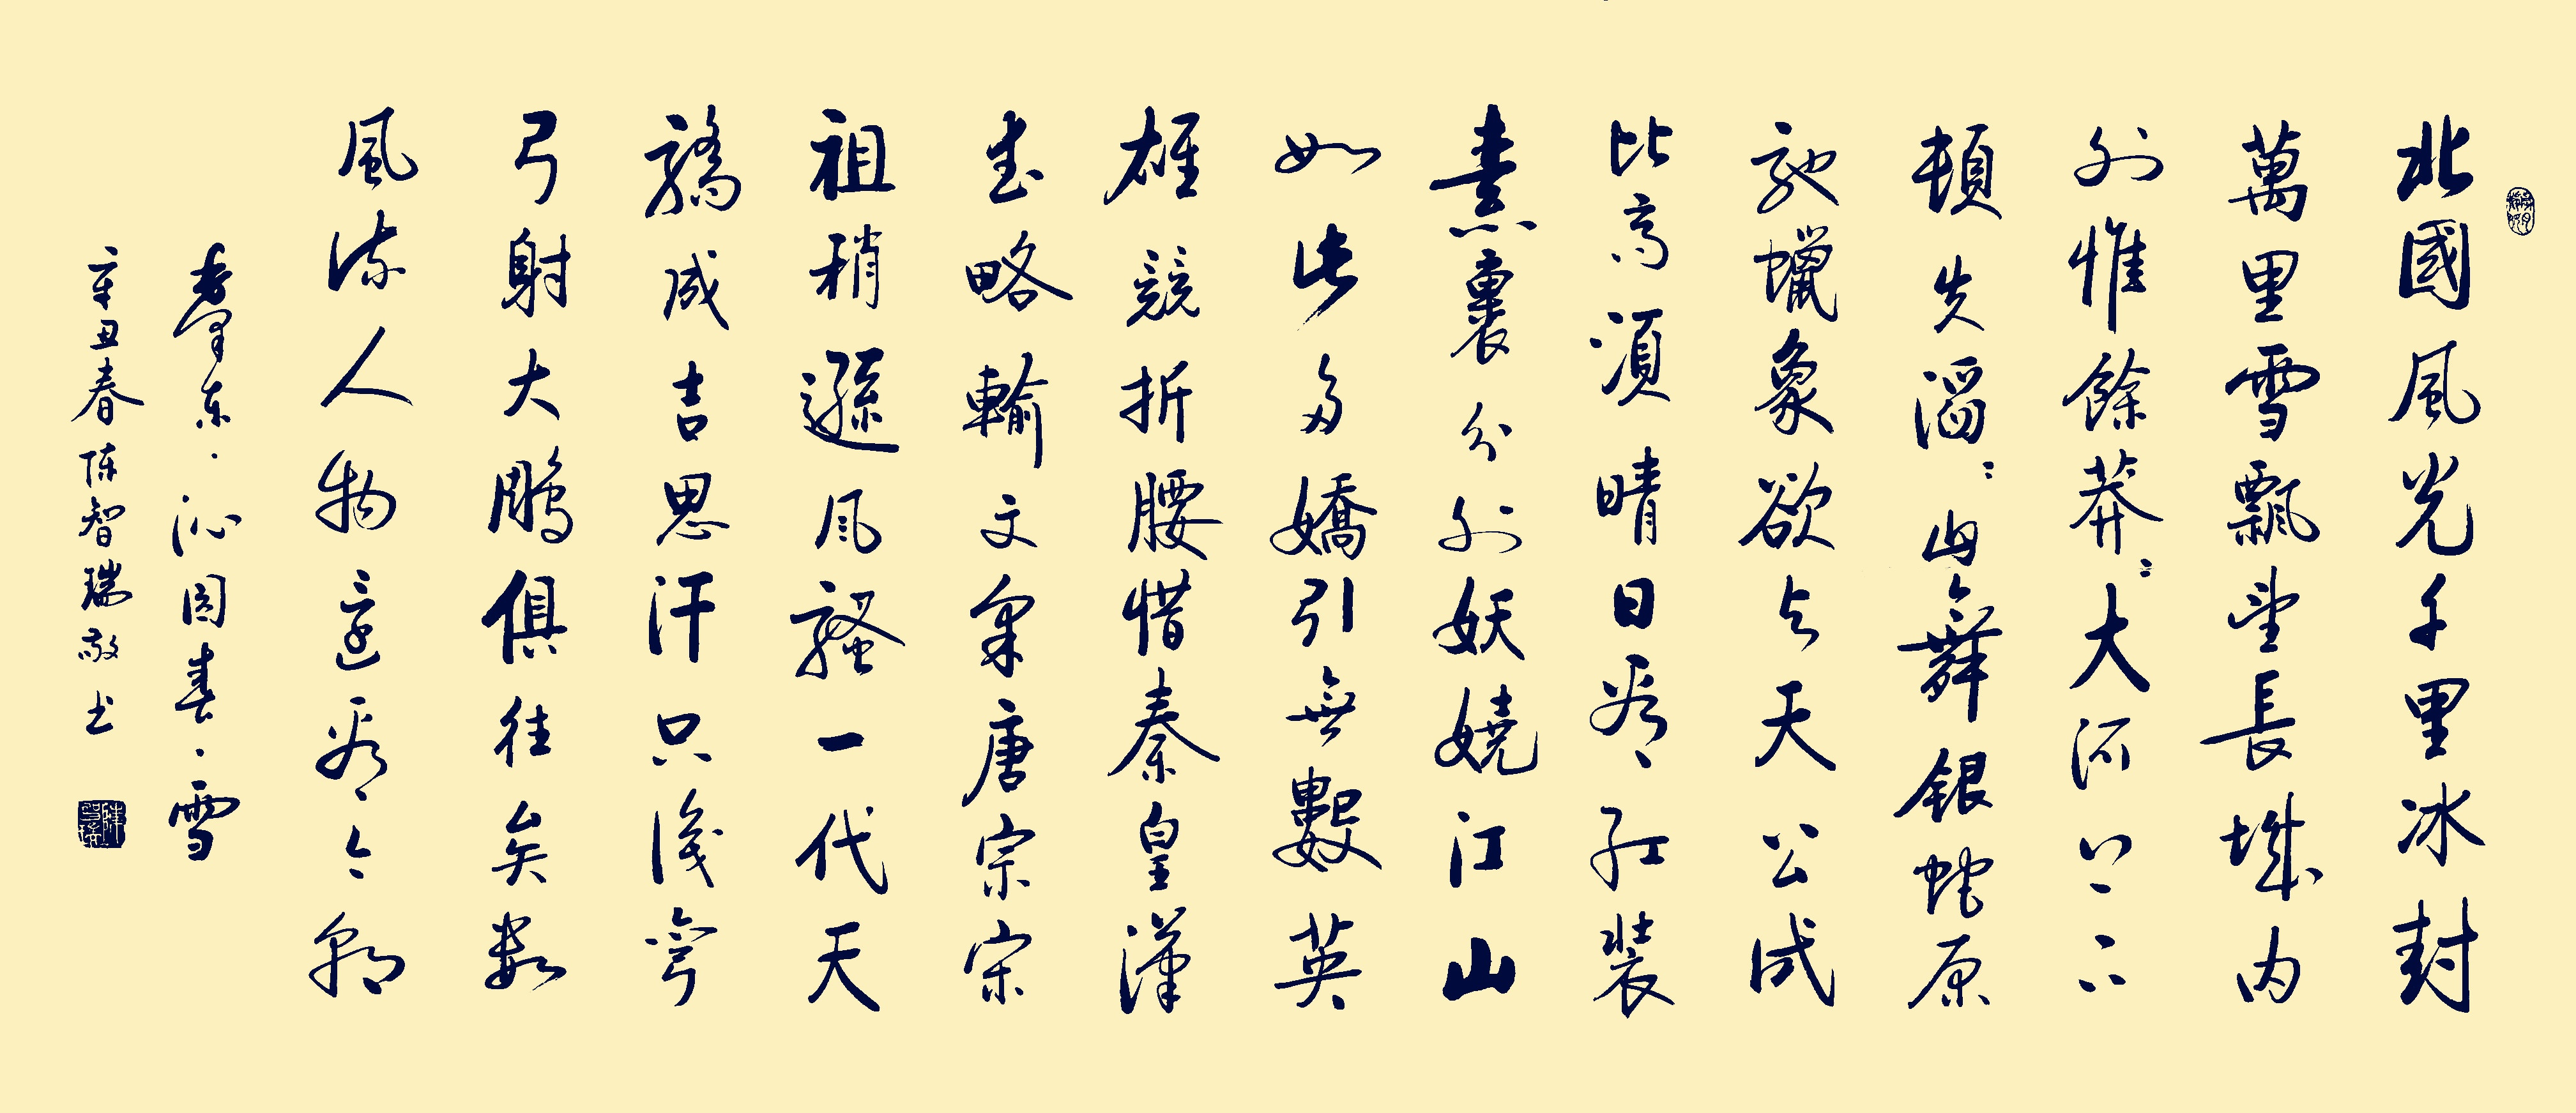 北國風光千里冰封
萬里雪飄望長城内
外惟餘莽〻大河上下
頓失滔〻山舞銀蛇原
馳蠟象欲与天公試
比高須晴日看紅裝
素裹分外妖嬈江山
如此多嬌引無數英
雄競折腰惜秦皇漢
武略輸文采唐宗宋
祖稍遜風騷一代天
驕成吉思汗只識彎
弓射大鵰俱往矣数
風流人物還看今朝
毛澤东·沁园春·雪
辛丑春陈智瑞敬书